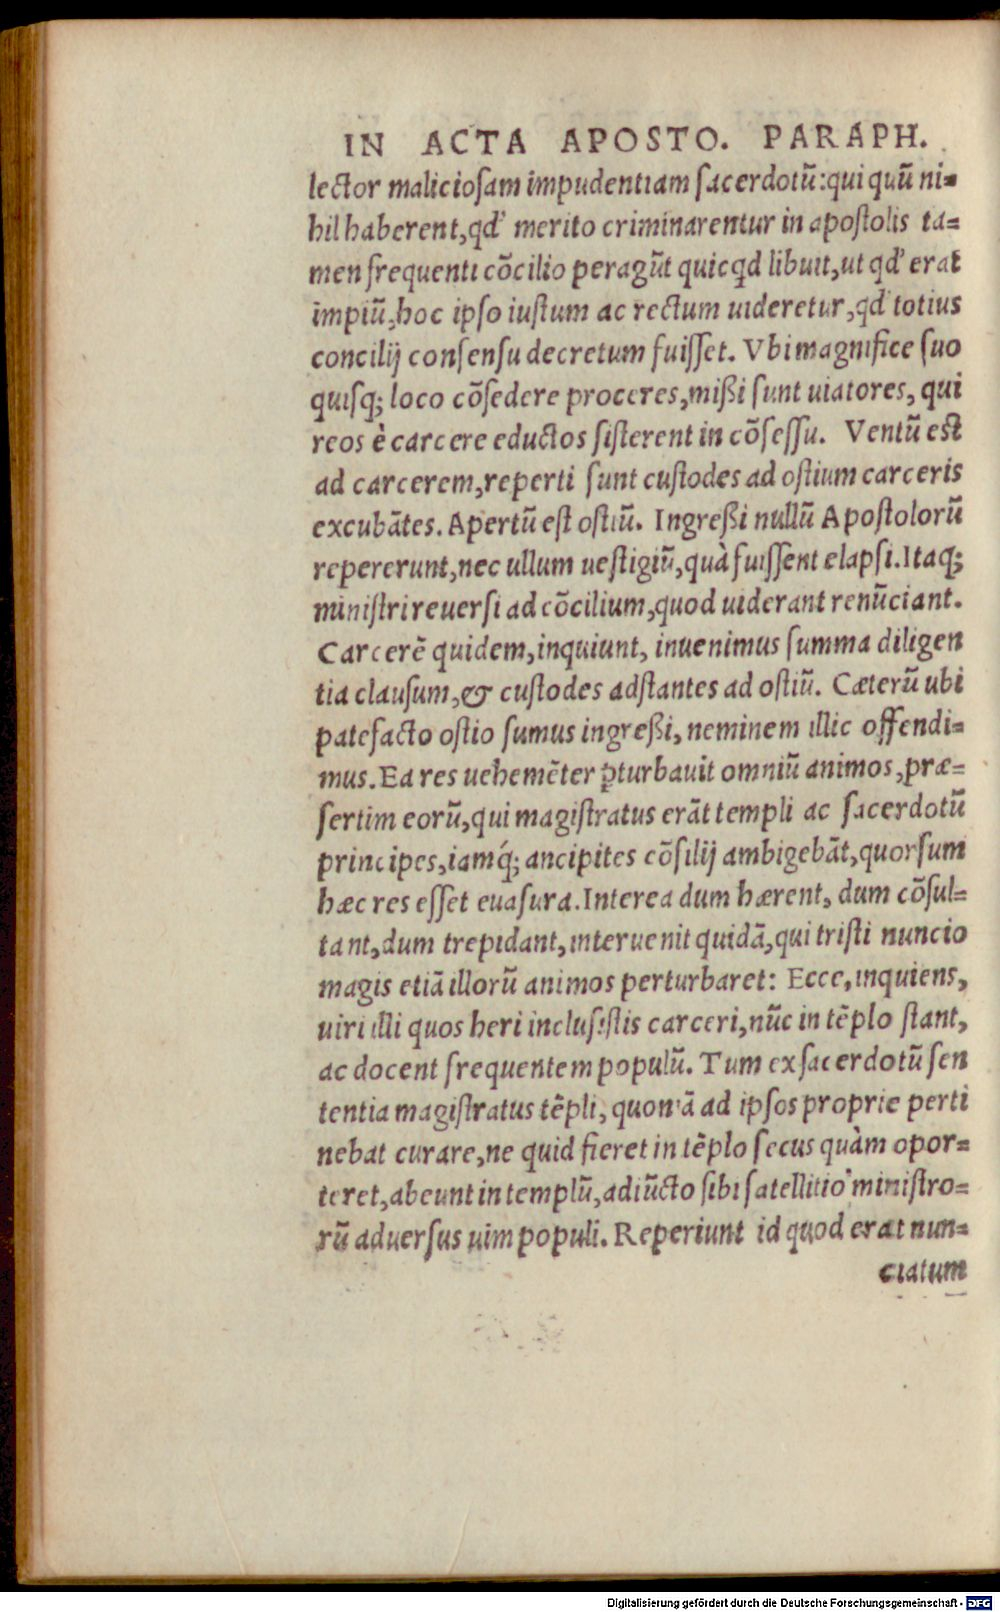 IN ACTA APOSTO. PARAPH.
lector maliciosam impudentiam sacerdotũ: qui quũ ni-
hil haberent, qđ merito criminarentur in apostolis ta-
men frequenti cõcilio peragũt quicqd libuit, ut qđ erat
impiũ, hoc ipso iustum ac rectum uideretur, qđ totius
concilij consensu decretum fuisset. Vbi magnifice suo
quisq; loco cõsedere proceres, mißi sunt uiatores, qui
reos è carcere eductos sisterent in cõsessu. Ventũ est
ad carcerem, reperti sunt custodes ad ostium carceris
excubãtes. Apertũ est ostiũ. Ingreßi nullũ Apostolorũ
repererunt, nec ullum uestigiũ, quà fuissent elapsi. Itaq;
ministri reuersi ad cõcilium, quod uiderant renũciant.
Carcerẽ quidem, inquiunt, inuenimus summa diligen
tia clausum, & custodes adstantes ad ostiũ. Cæterũ ubi
patefacto ostio sumus ingreßi, neminem illic offendi-
mus. Ea res uehemẽter ꝑturbauit omniũ animos, præ-
sertim eorũ, qui magistratus erãt templi ac sacerdotũ
principes, iamq́; ancipites cõsilij ambigebãt, quorsum
hæc res esset euasura. Interea dum hærent, dum cõsul-
tant, dum trepidant, interuenit quidã, qui tristi nuncio
magis etiã illorũ animos perturbaret: Ecce, inquiens,
uiri illi quos heri inclusistis carceri, nũc in tẽplo stant,
ac docent frequentem populũ. Tum ex sacerdotũ sen
tentia magistratus tẽpli, quoniã ad ipsos proprie perti
nebat curare, ne quid fieret in tẽplo secus quàm opor-
teret, abeunt in templũ, adiũcto sibi satellitio ministro-
rũ aduersus uim populi. Reperiunt id quod erat nun-
ciatum
Digitalisierung gefördert durch die Deutsche Forschungsgemeinschaft - DFG